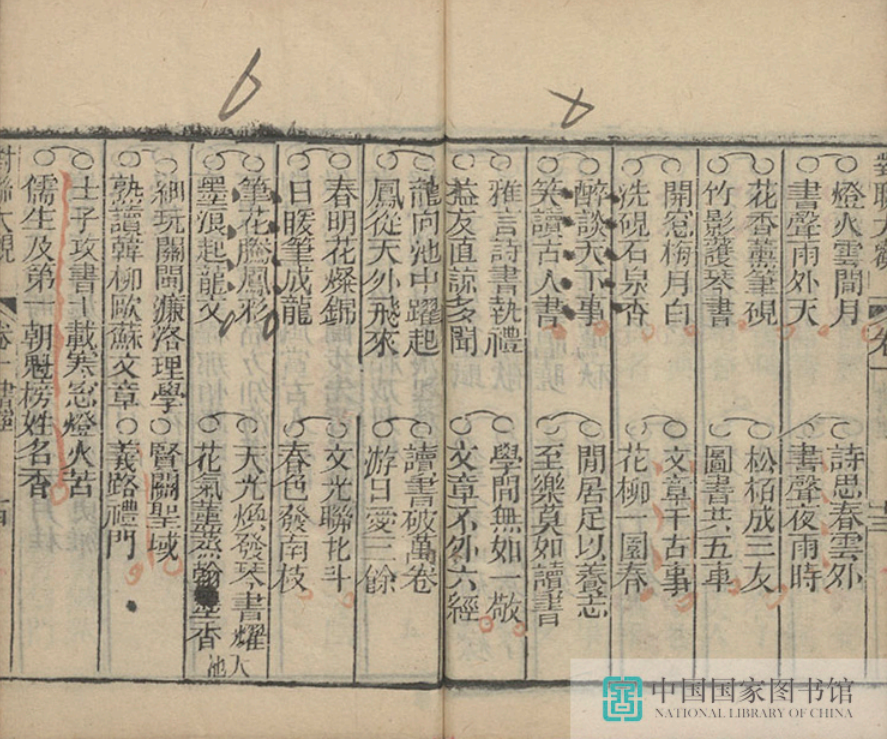 對聯大觀
卷一
燈火雲間月
書聲雨外天
詩思春雲外
書聲夜雨時
花香薰筆硯
竹影護琴書
松柏成三友
圖書共五車
開窓梅月白
洗硯石泉香
文章千古事
花柳一園春
醉談天下事
笑讀古人書
閒居足以養志
至樂莫如讀書
雅言詩書執禮
益友直諒多聞
學問無如一敬
文章不外六經
龍向池中躍起
鳳從天外飛來
讀書破萬卷
游日愛三餘
春明花燦錦
日暖筆成龍
文光聯北斗
春色發南枝
筆花騰鳳彩
墨浪起龍文
天光煥發琴書耀
花氣薰蒸翰墨香
細玩關閩濂洛理學 賢關聖域
熟讀韓柳歐蘇文章 義路禮門
士子攻書十載寒窓燈火苦
儒生及第一朝魁榜姓名香
對聯大觀
卷一
中国国家图书馆
NATIONAL LIBRARY OF CHINA